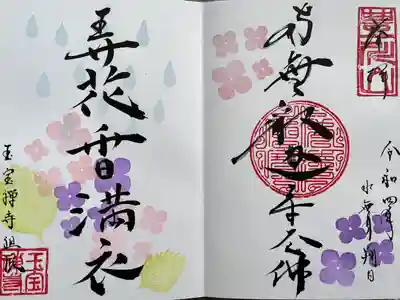 奉拝
令和四年
水無月朔日
南無釈迦牟尼佛
弄花香満衣
玉宝禅寺